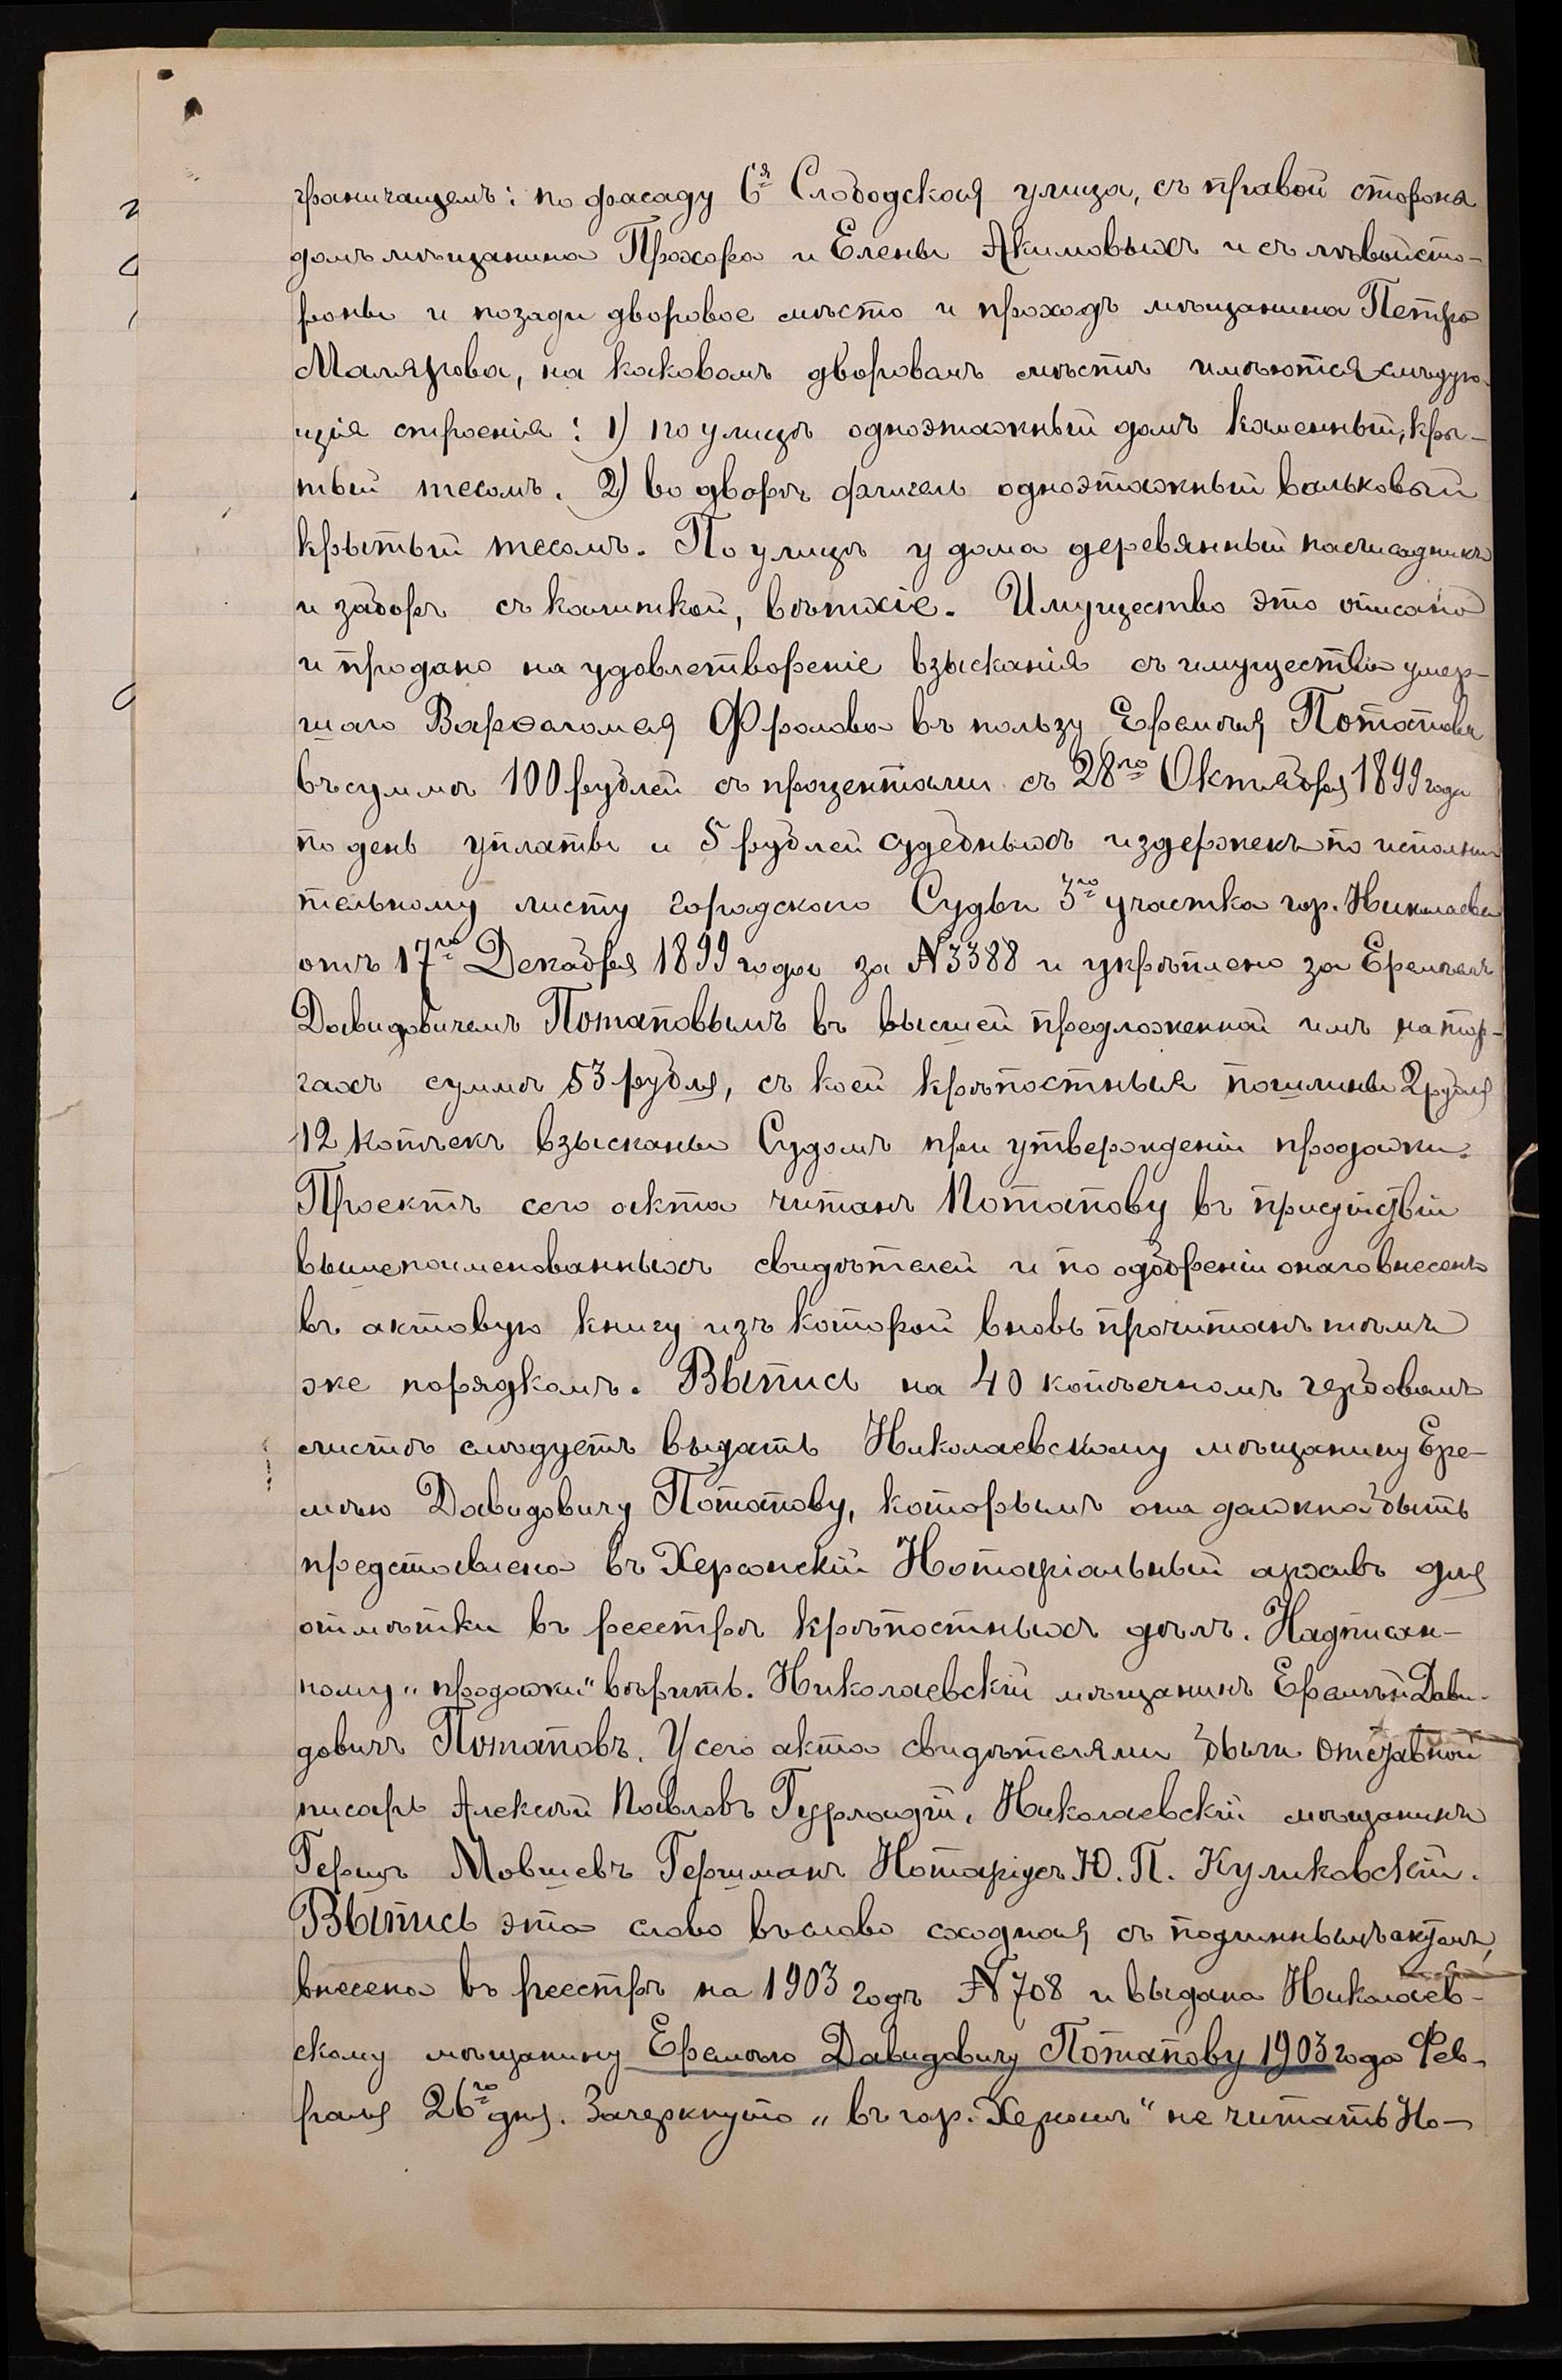 граничащемъ: по фасаду 6я Слободская улица, съ правой стороны
домъ мѣщанина Прохора и Елены Акимовыхъ и съ лѣвой сто-
роны и позади дворовое мѣсто и проходъ мѣщанина Петра
Малярова, на каковомъ дворовомъ мѣстѣ имѣются слѣдую-
щія строенія: 1) по улицѣ одноэтажный домъ каменный, кры-
тый тесомъ. 2) во дворѣ флигель одноэтажный вальковый
крытый тесомъ. По улицѣ у дома деревянный палисадникъ
и заборъ съ калиткой, вѣтхіе. Имущество это описано
и продано на удовлетвореніе взысканія съ имущества умер-
шаго Варѳоломея Фролова въ пользу Еремѣя Потапова
въ суммѣ 100 рублей съ процентами съ 28го Октября 1899 года
по день уплаты и 5 рублей судебныхъ издержекъ по исполни
тельному листу городского Судьи 3го участка гор. Николаева
отъ 17го Декабря 1899 года за N 3388 и укрѣплено за Еремѣемъ
Давидовичемъ Потаповымъ въ высшей предложенной имъ на тор-
гахъ суммѣ 53 рубля, съ коей крѣпостныя пошлины 2 рубля
12 копѣекъ взысканы Судомъ при утвержденіи продажи.
Проектъ сего акта читанъ Потапову въ присутствіи
вышепоименованныхъ свидѣтелей и по одобреніи онаго внесенъ
въ актовую книгу изъ которой вновь прочитанъ тѣмъ
же порядкомъ. Выпись на 40 копѣечномъ гербовомъ
листѣ слѣдуетъ выдать Николаевскому мѣщанину Ере-
мѣю Давидовичу Потапову, которымъ она должна быть
представлена въ Херсонскій Нотаріальный архивъ для
отмѣтки въ реестрѣ крѣпостныхъ дѣлъ. Надписан-
ному „продажи" вѣрить. Николаевскій мѣщанинъ Еремѣй Дави-
довичъ Потаповъ. У сего акта свидѣтелями были отставной
писарь Алексѣй Павловъ Гурландій, Николаевскій мѣщанинъ
Герцъ Мовшевъ Гершманъ Нотаріусъ Ю. П. Куликовскій.
Выпись эта слово въ слово сходная съ подлиннымъ актомъ,
внесена въ реестръ на 1903 годъ N 708 и выдана Николаев-
скому мѣщанину Еремѣю Давидовичу Потапову 1903 года Фев-
раля 26го дня. Зачеркнуто „въ гор. Херсонѣ" не читать Но-